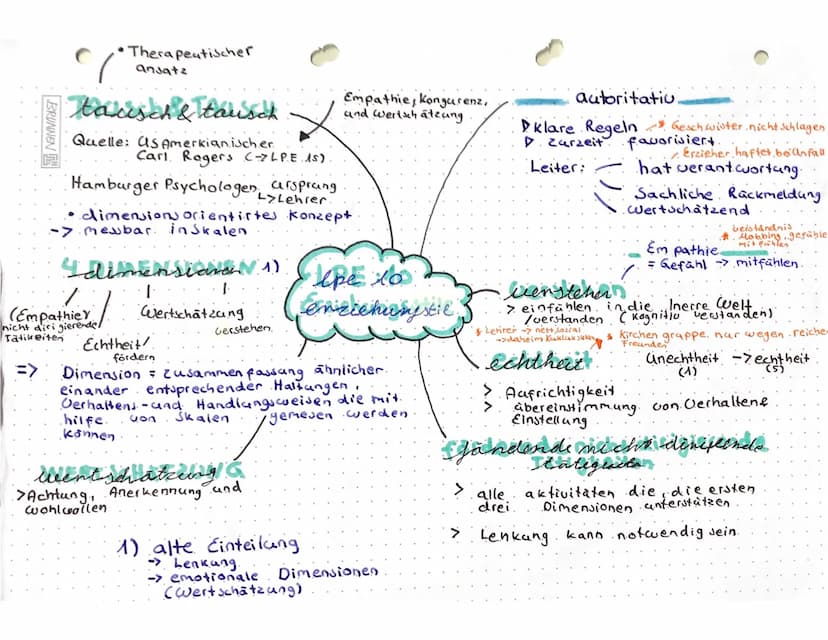 • Therapeutischer
ansatz
tausch & tausch
Empathie, Kongurenz,
und Wertschätzung
Quelle: US Amerkianischer
Carl Rogers (-> LPE 15)
Hamburger Psychologen, ursprung
↳ Lehrer
• dimensionsorientirtes Konzept
-> messbar in Skalen
4 dimensionen 1)
(Empathie)
nicht dirigierende
Tätikeiten
Echtheit/
fördern
Wertschätzung
verstehen
=> Dimension = zusammenfassung ähnlicher
einander entsprechender Haltungen,
Verhaltens- und Handlungsweisen die mit
hilfe von Skalen gemesen werden
können
wertschätzung
> Achtung, Anerkennung und
wohlwollen
1) alte Einteilung
-> Lenkung
-> emotionale Dimensionen
(Wertschätzung)
BRUNNEN
lpe 10
erziehungsstile
autoritativ
▷ klare Regeln
Geschwister nicht schlagen
▷ zurzeit favorisiert
Erzieher haftet bei Unfall
Leiter:
hat verantwortung
Sachliche Rückmeldung
wertschätzend
verständnis
Mobbing, gefühle
mitfühlen
Empathie
= Gefühl -> mitfühlen
verstehen
> einfühlen in die Inerre Welt
/verstanden (kognitiv verstanden)
* Lehrer -> nett, sozial
-> daheim
* Kirchengrappe nur wegen reicher
Freunden
echtheit
Unechtheit -> echtheit
(1) (5)
> Aufrichtigkeit
> übereinstimmung von Verhalten &
Einstellung
fördernde nicht-dirigierende
tätigkeiten
> alle aktivitäten die, die ersten
drei Dimensionen unterstützen
> Lenkung kann notwendig sein